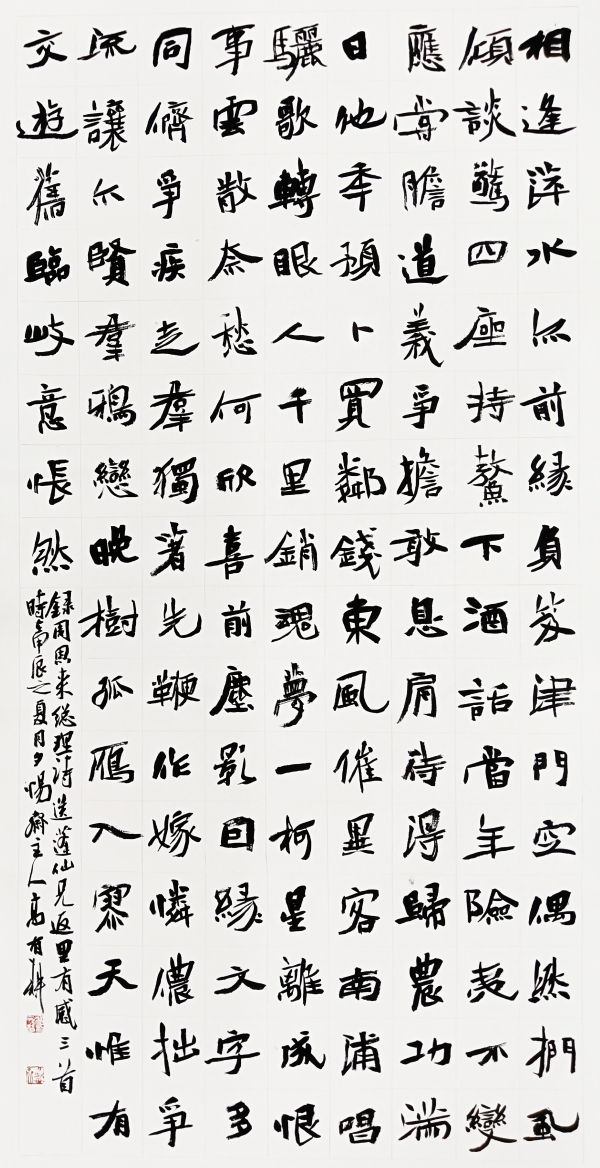 相逢萍水亦前緣負笈津門空偶然捫虱
傾談驚四座持螯下酒話當年險夷不變
應嘗膽道義爭擔敢息肩待得歸農功滿
日他年預卜買鄰錢東風催異客南浦唱
驪歌轉眼人千里銷魂夢一柯星離成恨
事雲散奈愁何欣喜前塵影囙緣文字多
同儕爭疾走羣獨著先鞭作嫁憐儂拙爭
流讓尔賢羣鴉戀晚樹孤雁入寥天惟有
交遊舊臨岐意悵然
錄周恩來總理詩送蓬仙兄返里有感三首
時甲辰之夏月夕惕齋主人高有